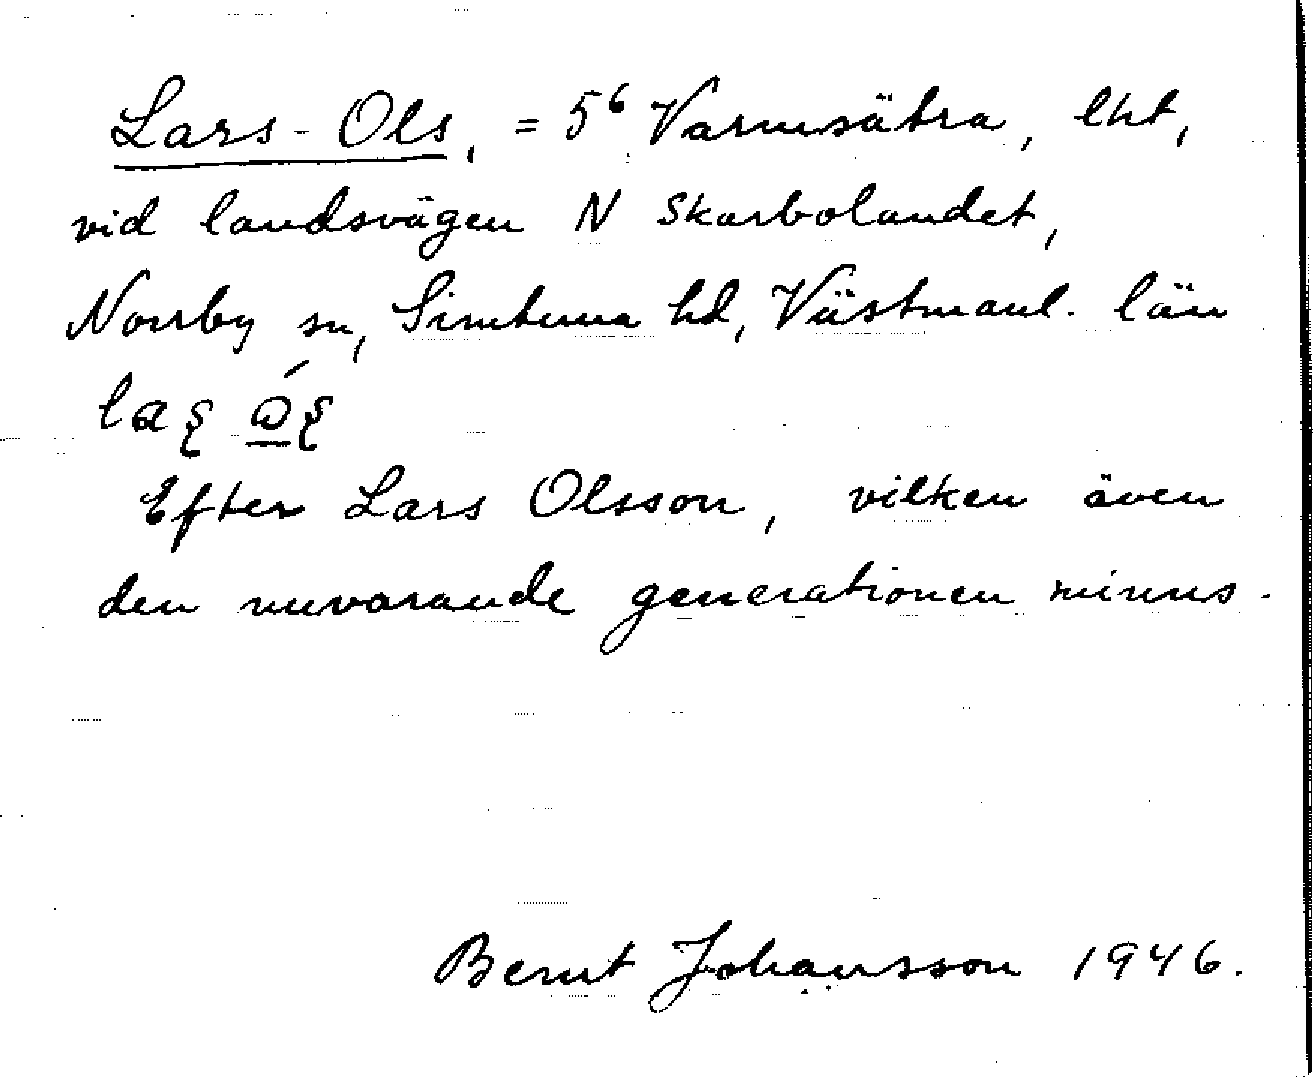 Lars-Ols, = 5⁶ Varmsätra, lht,
vid landsvägen N Skarbolandet,
Norrby sn, Simtuna hd, Västmanl. län
Efter Lars Olsson, vilken även
den nuvarande generationen minns.
Bernt Johansson 1946.